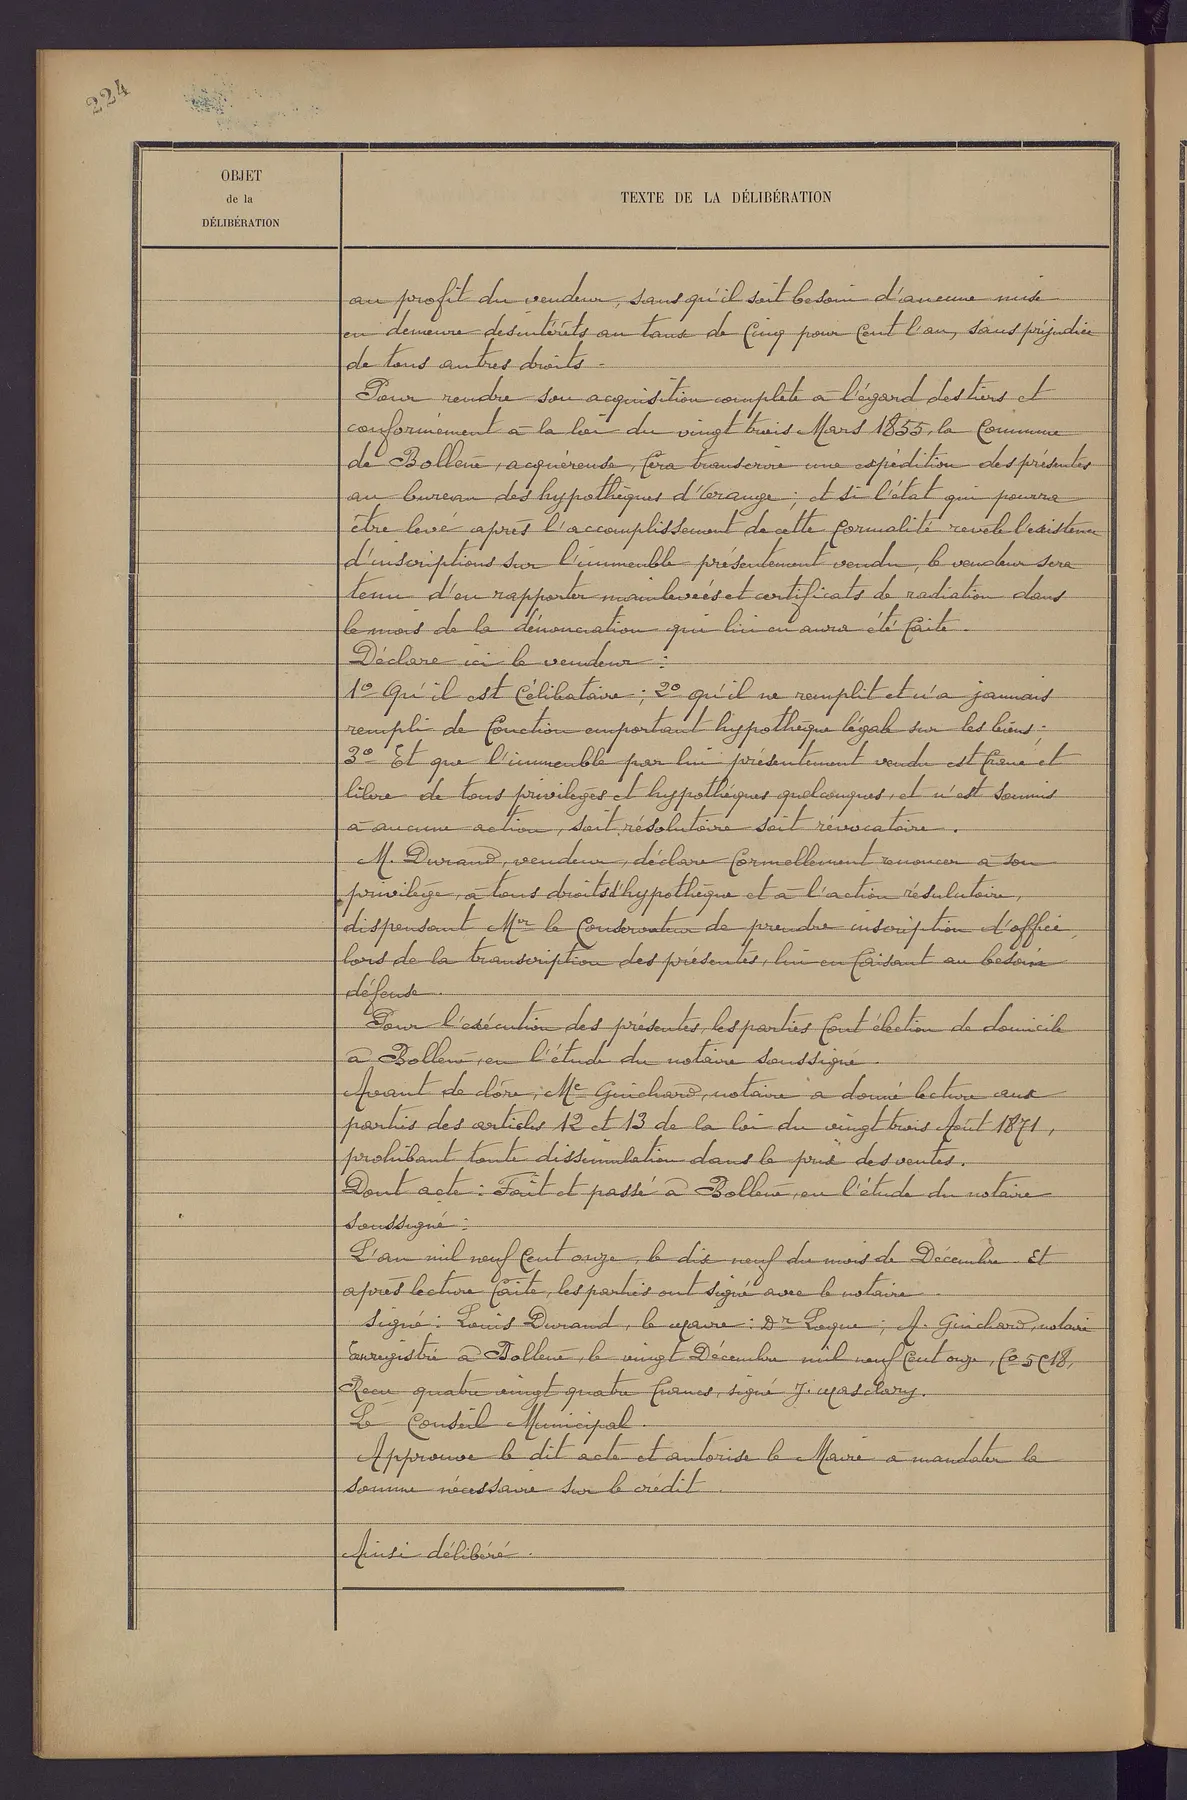 224
OBJET
de la
DÉLIBÉRATION
TEXTE DE LA DÉLIBÉRATION
au profit du vendeur, sans qu'il soit besoin d'aucune mise
en demeure des intérêts au taux de Cinq pour Cent l'an, sans préjudice
de tous autres droits -
Pour rendre son acquisition complète à l'égard des tiers et
conformément à la loi du vingt trois Mars 1855, la Commune
de Bollène, acquéreuse, fera transcrire une expédition des présentes
au bureau des hypothèques d'Orange ; et si l'état qui pourra
être levé après l'accomplissement de cette formalité revèle l'existence
d'inscriptions sur l'immeuble présentement vendu, le vendeur sera
tenu d'en rapporter mainlevées et certificats de radiation dans
le mois de la dénonciation qui lui en aura été faite.
Déclare ici le vendeur :
1º Qu'il est Célibataire ; 2º qu'il ne remplit et n'a jamais
rempli de fonction emportant hypothèque légale sur les biens ;
3º Et que l'immeuble par lui présentement vendu est franc et
libre de tous privilèges et hypothèques quelconques, et n'est soumis
à aucune action, soit résolutoire soit révocatoire.
M. Durand, vendeur, déclare formellement renoncer à son
privilège, à tous droits d'hypothèque et à l'action résolutoire,
dispensant Mr le Conservateur de prendre inscription d'office,
lors de la transcription des présentes, lui en faisant au besoin
défense.
Pour l'exécution des présentes, les parties font élection de domicile
à Bollène, en l'étude du notaire soussigné.
Avant de clore, Me Guichard, notaire a donné lecture aux
parties des articles 12 et 13 de la loi du vingt trois Août 1871,
prohibant toute dissimulation dans le prix des ventes.
Dont acte : Fait et passé à Bollène, en l'étude du notaire
soussigné :
L'an mil neuf Cent onze, le dix neuf du mois de Décembre. Et
après lecture faite, les parties ont signé avec le notaire.
Signé : Louis Durand, le Maire : Dr Loque ; A. Guichard, notaire
Enregistré à Bollène, le vingt Décembre mil neuf Cent onze, fº 5 C 18,
Reçu quatre vingt quatre francs, signé J. Masclary.
Le Conseil Municipal.
Approuve le dit acte et autorise le Maire à mandater la
somme nécessaire sur le crédit.
Ainsi délibéré.